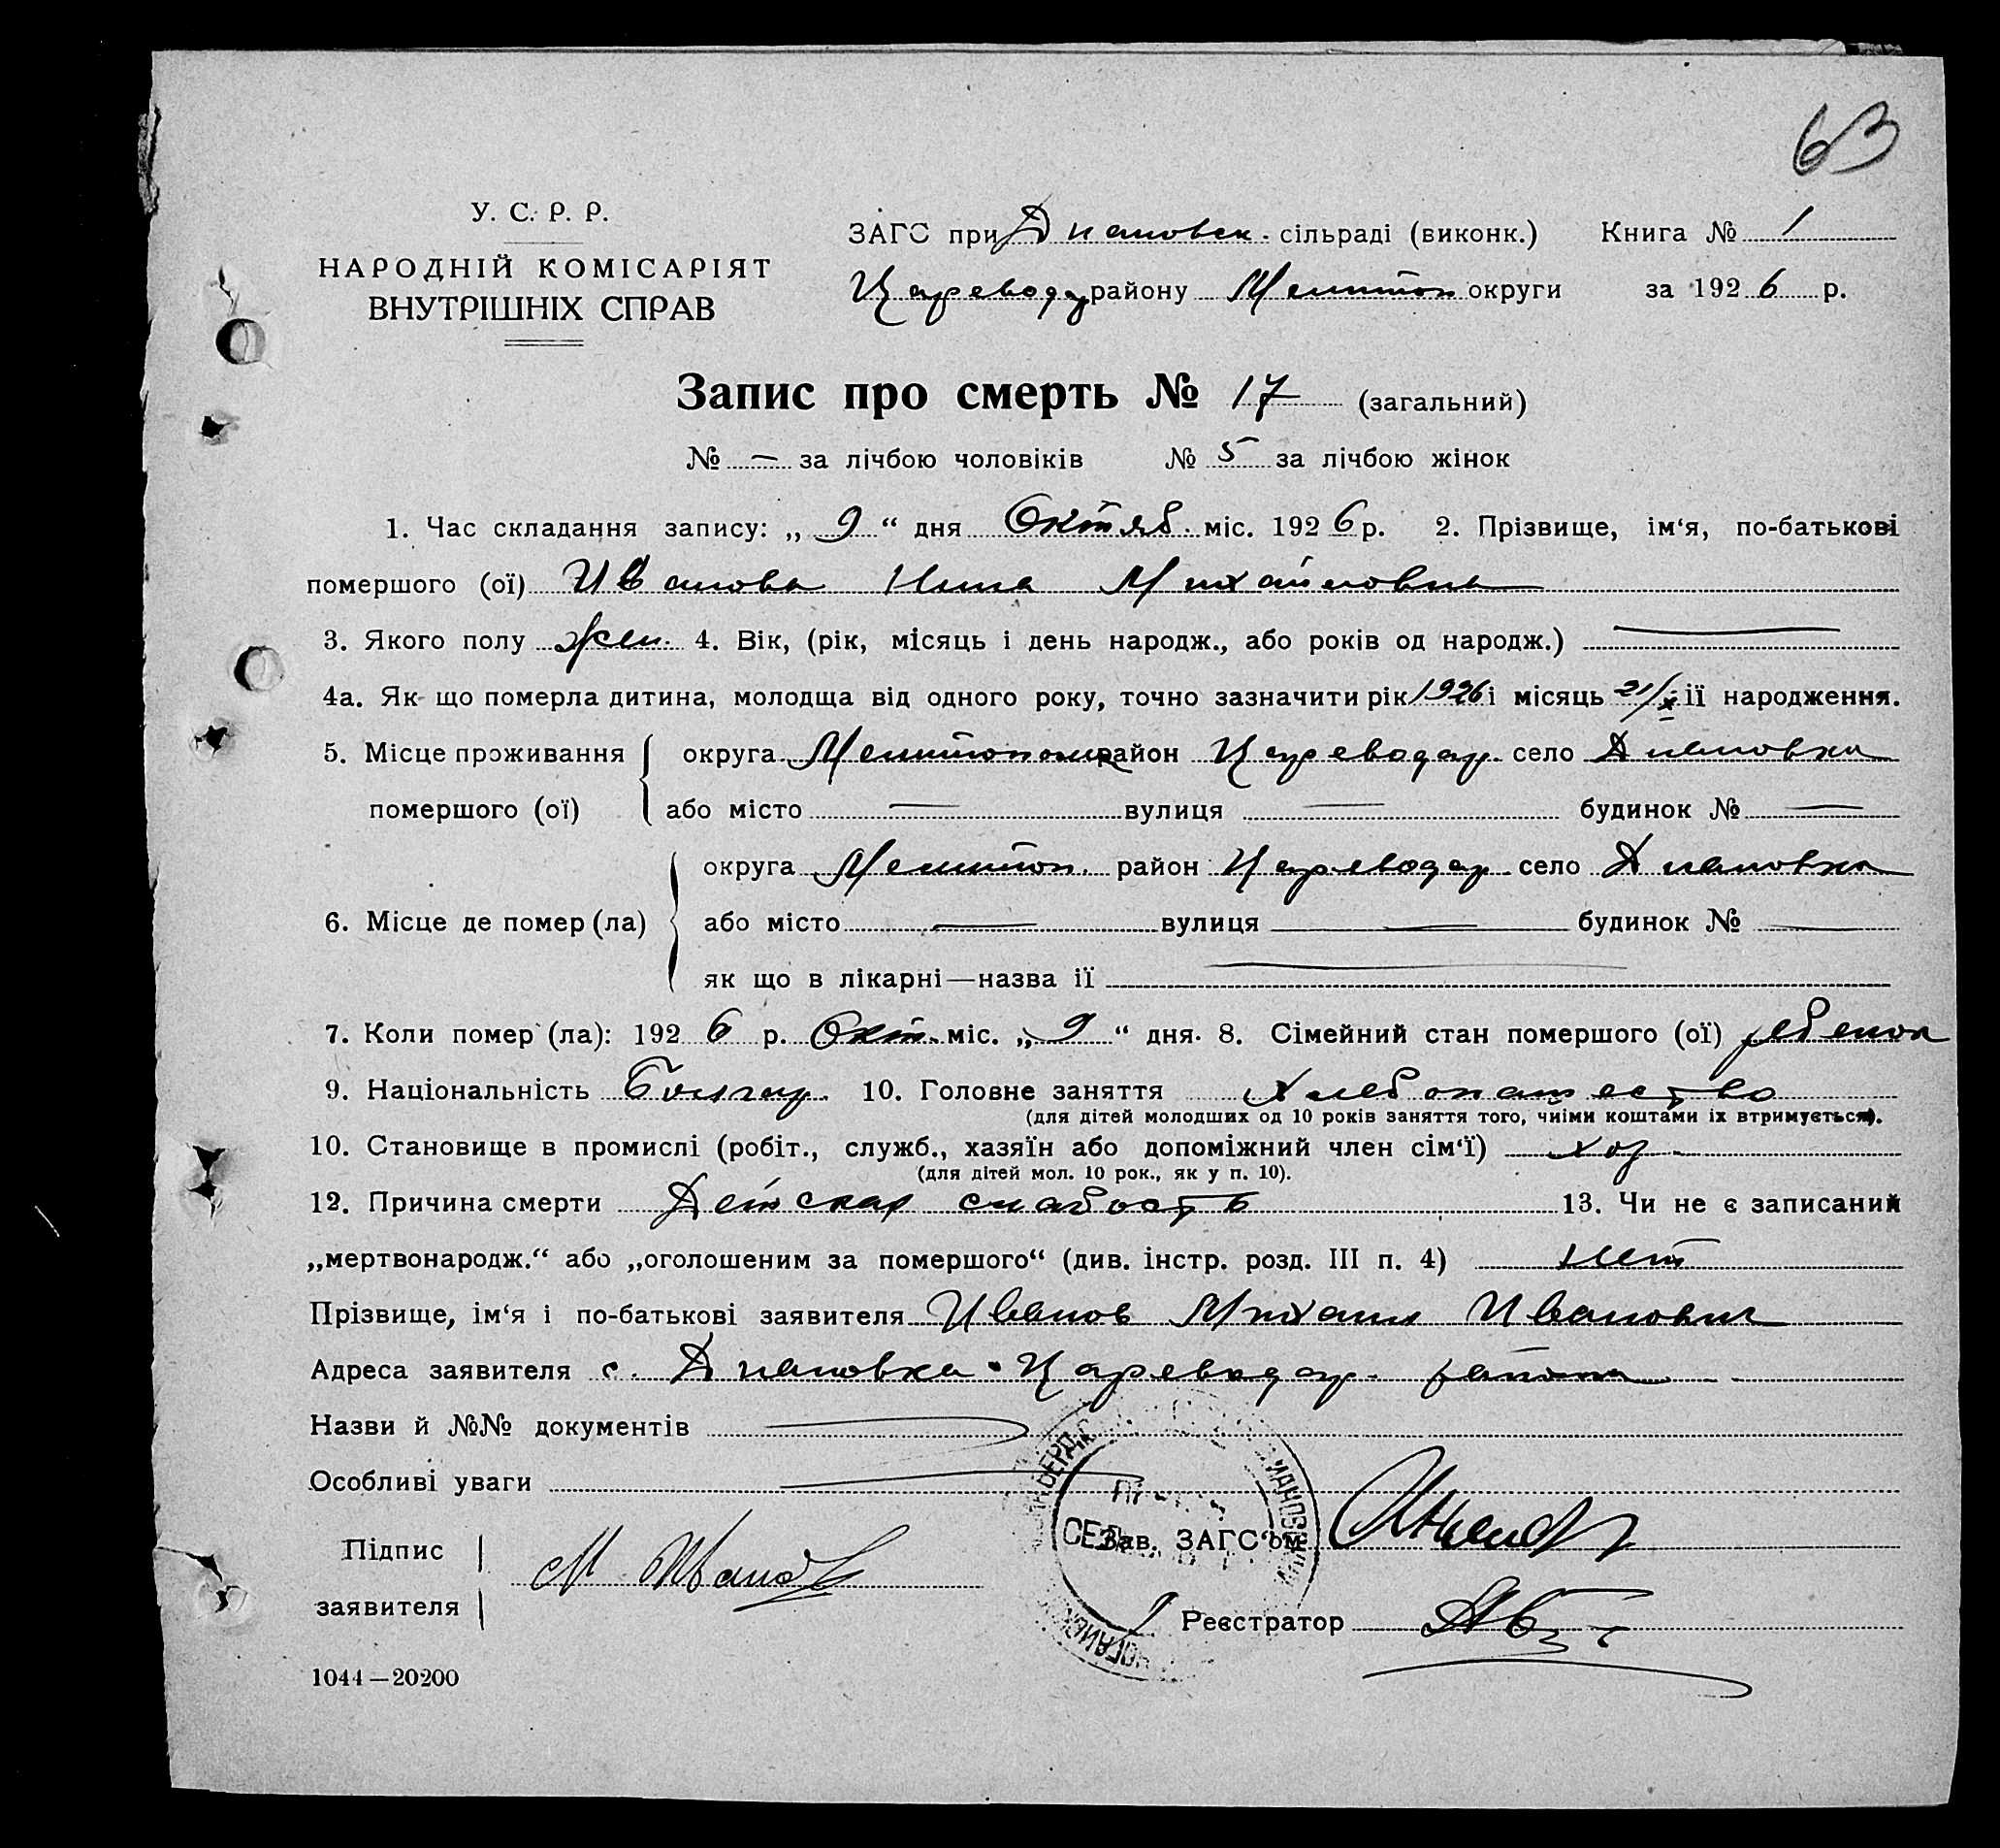 63
У. С. Р. Р.
НАРОДНІЙ КОМІСАРІЯТ
ВНУТРІШНІХ СПРАВ
ЗАГС при Діановск. сільраді (виконк.) Книга № 1
Цареводар району Мелитоп округи за 1926 р.
Запис про смерть № 17 (загальний)
№ — за лічбою чоловіків № 5 за лічбою жінок
1. Час складання запису: „ 9 “ дня Октяб. міс. 1926 р. 2. Прізвище, ім‘я, по-батькові
помершого (ої) Иванова Нина Михайловна
3. Якого полу жен. 4. Вік, (рік, місяць і день народж., або років од народж.) —
4а. Як що померла дитина, молодща від одного року, точно зазначити рік 1926 і місяць 21/X її народження.
5. Місце проживання округа Мелитополь район Цареводар. село Діановка
помершого (ої) або місто — вулиця — будинок № —
округа Мелитоп. район Цареводар. село Діановка
6. Місце де помер (ла) або місто — вулиця — будинок № —
як що в лікарні—назва її —
7. Коли помер (ла): 1926 р. Окт. міс. „ 9 “ дня. 8. Сімейний стан помершого (ої) ребенок
9. Національність Болгар. 10. Головне заняття Хлебопашество
(для дітей молодших од 10 років заняття того, чиїми коштами їх втримується).
10. Становище в промислі (робіт., служб., хазяїн або допоміжний член сім‘ї) хоз.
(для дітей мол. 10 рок., як у п. 10).
12. Причина смерти Детская слабость 13. Чи не є записаний
„мертвонародж.“ або „оголошеним за помершого“ (див. інстр. розд. III п. 4) нет
Прізвище, ім‘я і по-батькові заявителя Иванов Михаил Иванович
Адреса заявителя с. Діановка Цареводар. района
Назви й №№ документів —
Особливі уваги —
Підпис
заявителя М Иванов
Зав. ЗАГС‘ом
Реєстратор
1044—20200